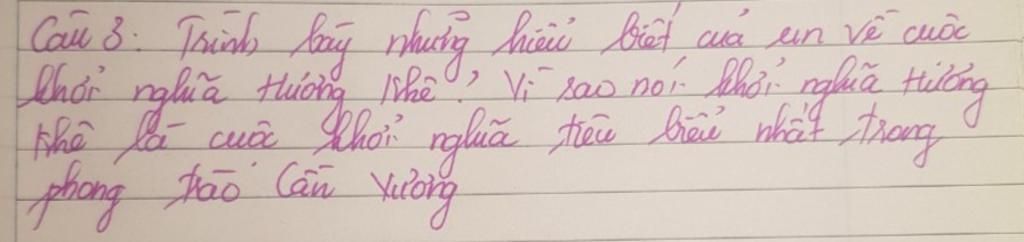 Câu 3. Trình bày những hiểu biết của em về cuộc
khởi nghĩa Hương Khê? Vì sao nói khởi nghĩa Hương
Khê là cuộc khởi nghĩa tiêu biểu nhất trong
phong trào Cần Vương